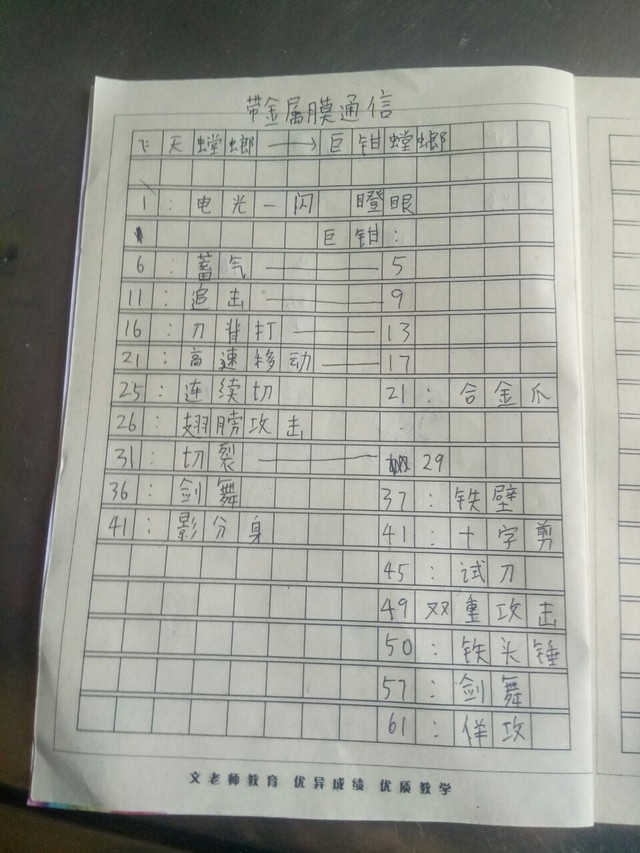 带金属膜通信
飞天螳螂——→巨钳螳螂
1:电光一闪 瞪眼
巨钳:
6:蓄气———5
11:追击———9
16:刀背打———13
21:高速移动——17
25:连续切 21:合金爪
26:翅膀攻击
31:切裂———29
36:剑舞 37:铁壁
41:影分身 41:十字剪
45:试刀
49双重攻击
50:铁头锤
57:剑舞
61:佯攻
文老师教育 优异成绩 优质教学